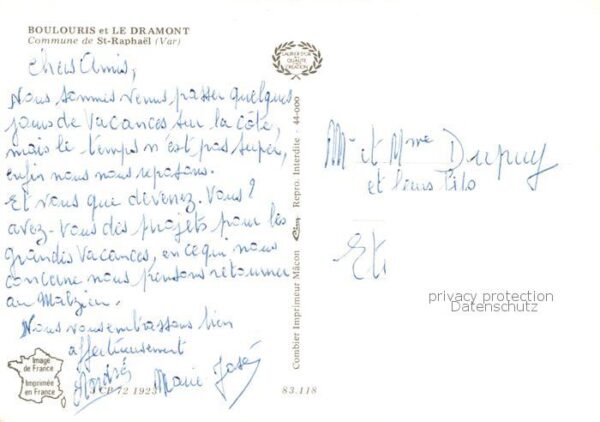 BOULOURIS et LE DRAMONT
Commune de St-Raphaël (Var)
LAURIER D'OR
DE QUALITÉ
CRÉATION
Chers Amis,
Nous sommes venus passer quelques
jours de vacances sur la côte,
mais le temps n'est pas super,
enfin nous nous reposons.
Et vous que devenez-vous ?
avez-vous des projets pour les
grandes vacances, en ce qui nous
concerne nous pensons retourner
au Malzieu.
Nous vous embrassons bien
affectueusement
André Marie José
Image
de France
Imprimée
en France
3 CP 72 1923
83.118
Combier Imprimeur Mâcon Cim Repro. Interdite - 44-000
Mr et Mme Dupuy
et leurs fils
Et
privacy protection
Datenschutz